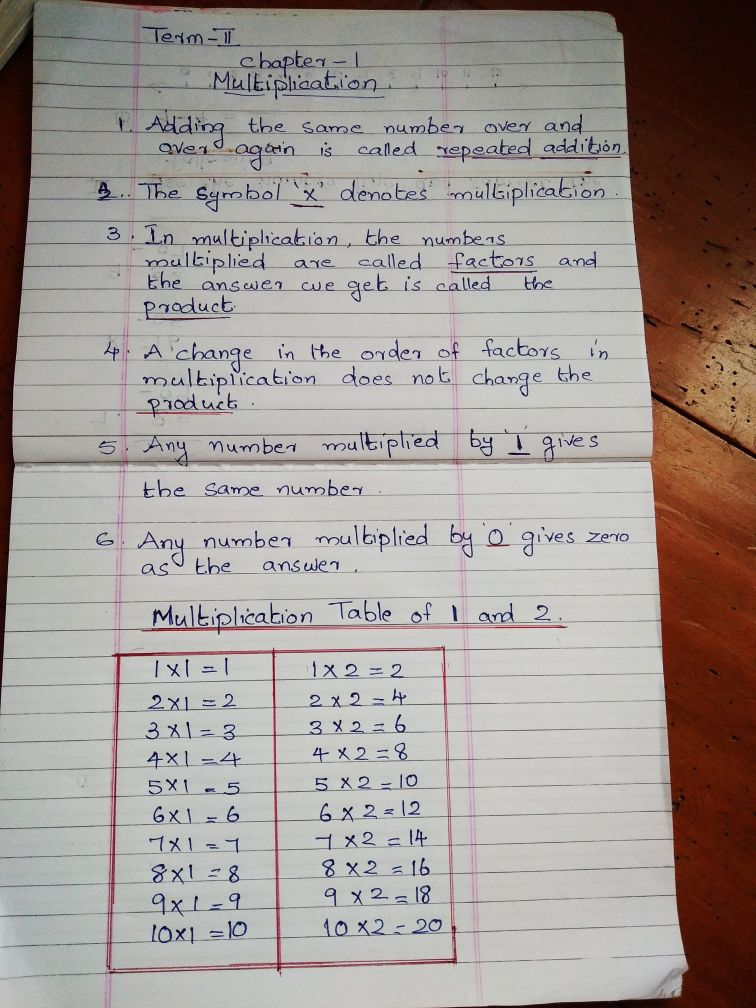 Term-II
chapter-1
Multiplication
1. Adding the same number over and
over again is called repeated addition.
2. The symbol 'x' denotes multiplication.
3. In multiplication, the numbers
multiplied are called factors and
the answer we get is called the
product.
4. A change in the order of factors in
multiplication does not change the
product.
5. Any number multiplied by '1' gives
the same number.
6. Any number multiplied by '0' gives zero
as the answer.
Multiplication Table of 1 and 2.
1x1=1 1x2=2
2x1=2 2x2=4
3x1=3 3x2=6
4x1=4 4x2=8
5x1=5 5x2=10
6x1=6 6x2=12
7x1=7 7x2=14
8x1=8 8x2=16
9x1=9 9x2=18
10x1=10 10x2=20